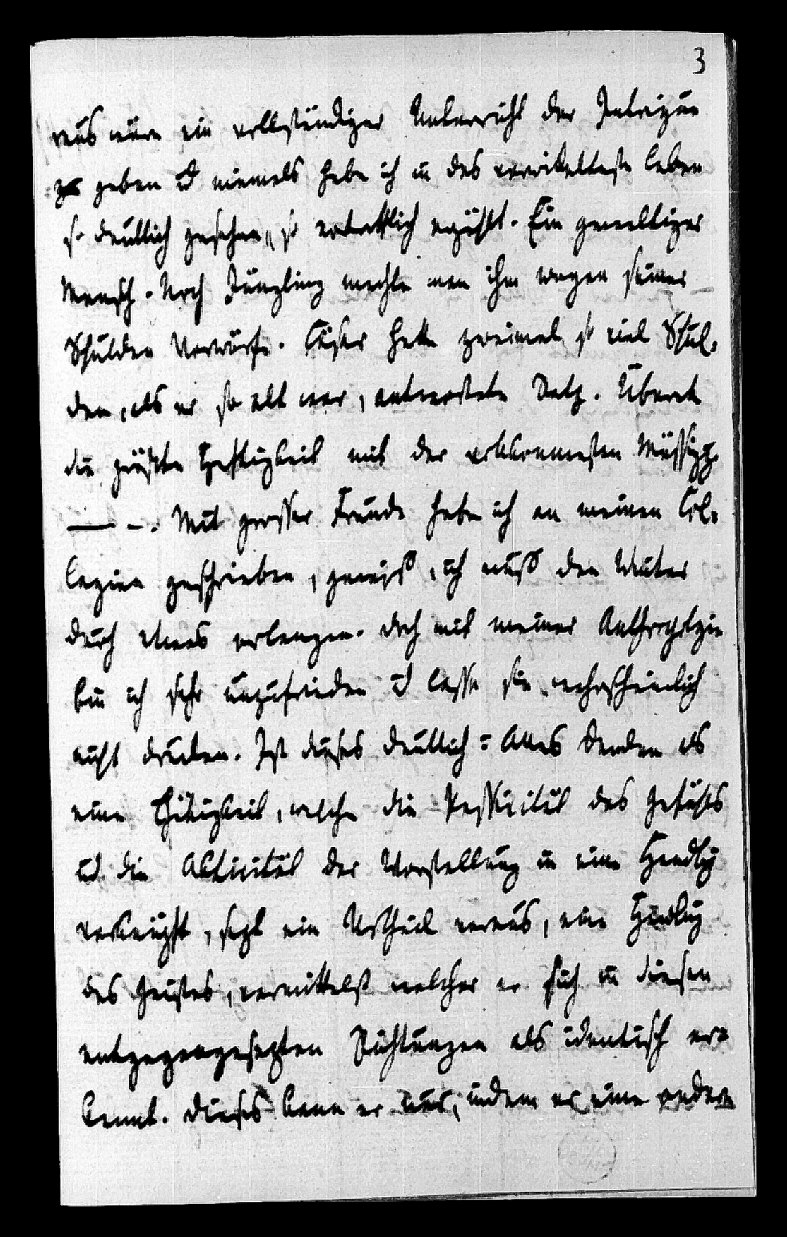 3
raus nur ein vollständiger Unterricht der Intrigue
zu geben u niemals habe ich in das verwickelteste Leben
so deutlich gesehen, so vortrefflich erzählt. Ein gewaltiger
Mensch. Noch Jüngling machte man ihm wegen seiner
Schulden Vorwürfe. Cäsar hatte zweimal so viel Schul-
den, als er so alt war, antwortete Retz. Überall
die größte Heftigkeit mit der vollkommensten Mässigg.
Mit grosser Freude habe ich an meinen Col-
legien geschrieben, gewiß, ich muß den Winter
durch etwas erlangen. Doch mit meiner
bin ich sehr unzufrieden u lasse sie wahrscheinlich
nicht drucken. Ist dieses deutlich: Alles Denken als
eine Thätigkeit, welche die Passivität des Gefühls
u. die Aktivität der Vorstellung in eine Handlg
verknüpft, setzt ein Urtheil voraus, eine Handlg
des Geistes, vermittelst welcher er sich in diesen
entgegengesetzten Richtungen als identisch er-
kennt. Dieses kann er nur, indem er eine andere